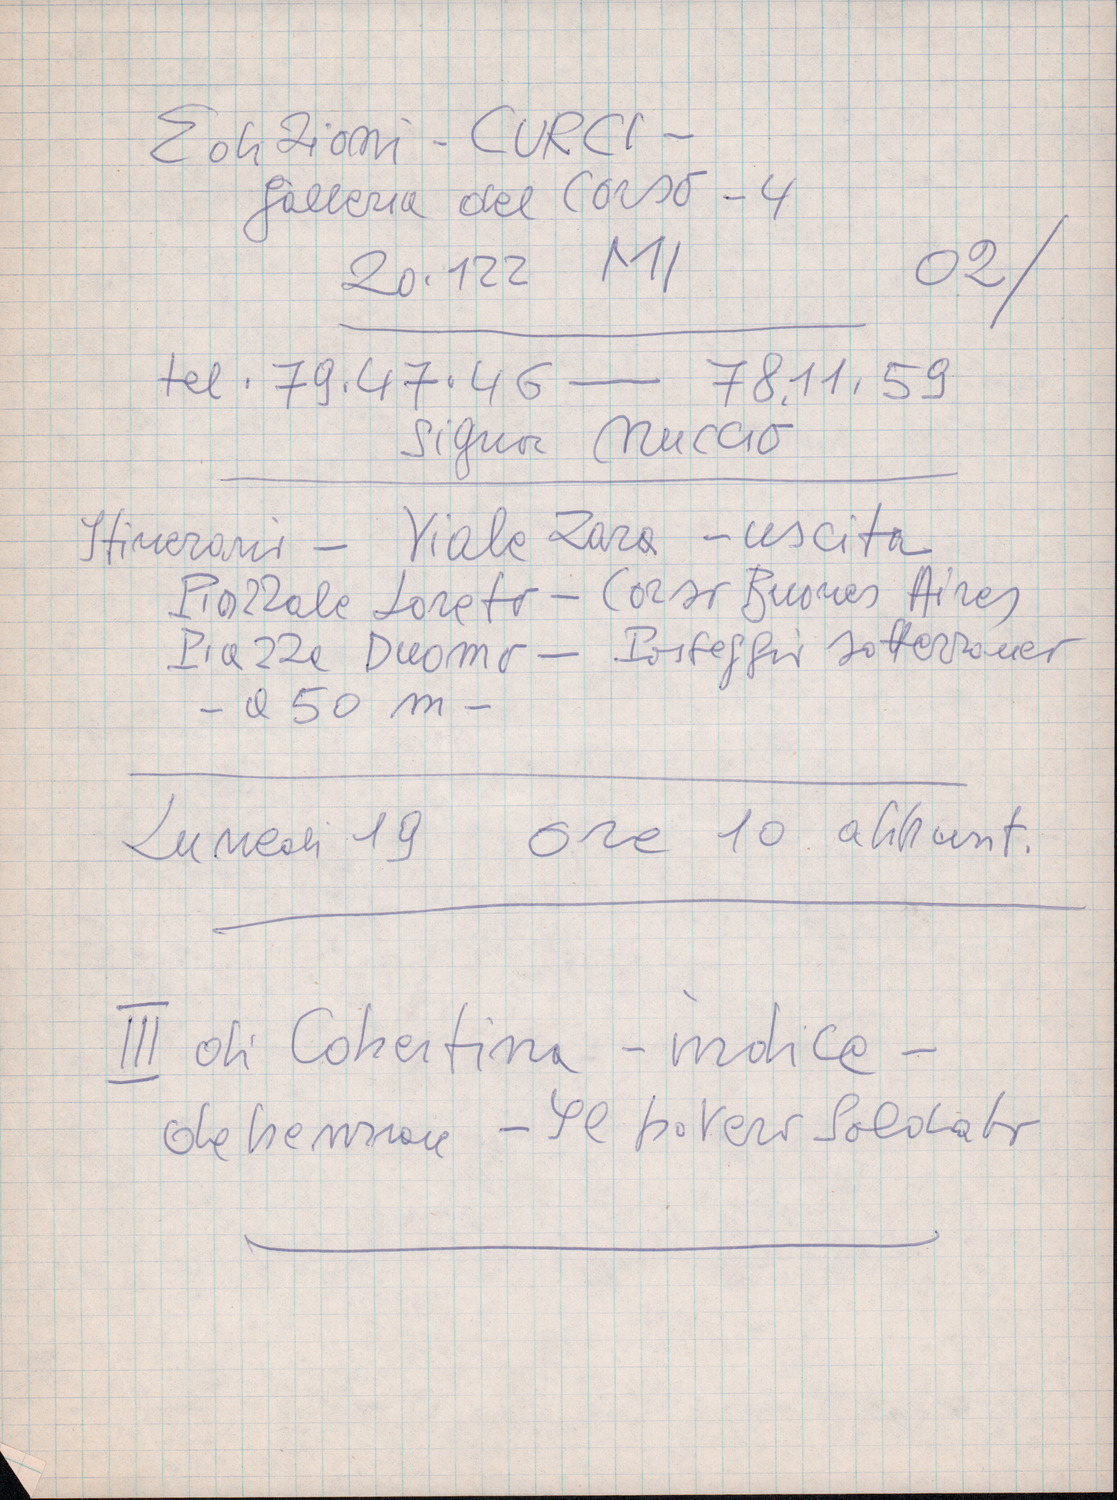 Edizioni - CURCI -
Galleria del Corso - 4
20.122 MI 02/
tel. 79.47.46 — 78.11.59
Signor
Itinerario - Viale Zara - uscita
Piazzale Loreto - Corso Buenos Aires
Piazza Duomo - Posteggio sotterraneo
- a 50 m -
Lunedi 19 ore 10 appunt.
III di Copertina - indice -
depennare - Il povero Soldato